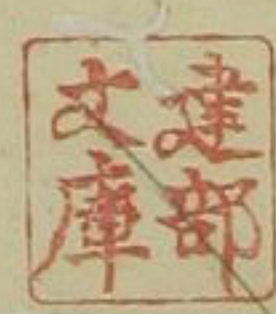 建部
文庫